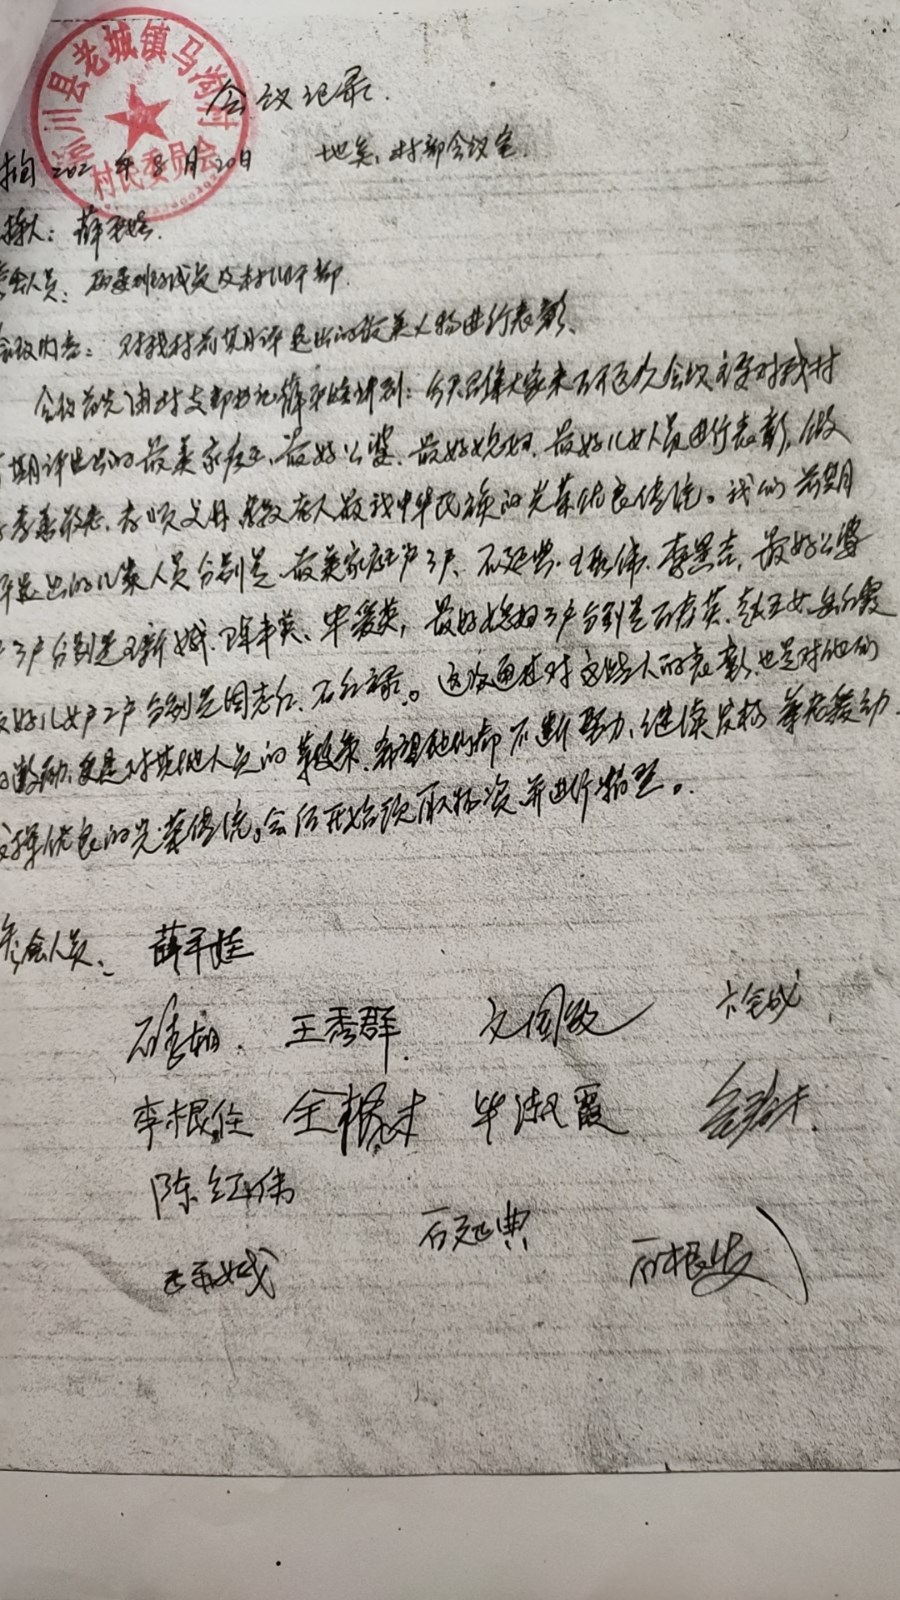 淅川县老城镇马沟村
村民委员会
会议记录.
时间 202 年 8月20日 地点:村部会议室.
持人:薛平娃.
参会人员:两委班子成员及村组干部.
会议内容:对我村前期评选出的最美人物进行表彰.
会议首先由村支部书记薛平娃讲到:今天召集大家来召开这次会议主要对我村
期评选出的最美家庭、最好公婆、最好媳妇、最好儿女人员进行表彰,做
孝善敬老、孝顺父母、老人是我中华民族的光荣优良传统。我们前期
评选出的几类人员分别是最美家庭户3户、石延典、王 伟、李黑吉,最好公婆
3户分别是王新娥、陈丰英、毕爱英,最好媳妇3户分别是石春英、赵玉女、岳红霞
最好儿女户2户分别是周志红、石红禄。这次通过对这些人的表彰,也是对他们
的激励,更是对其他人员的 ,希望他们都不断努力、继续发扬尊老爱幼
这样优良的光荣传统。会后开始领取物资并进行 。
参会人员: 薛平娃
王秀群 文国敏
李根 全 毕淑霞
陈红伟
石延典 石根发
王新娥